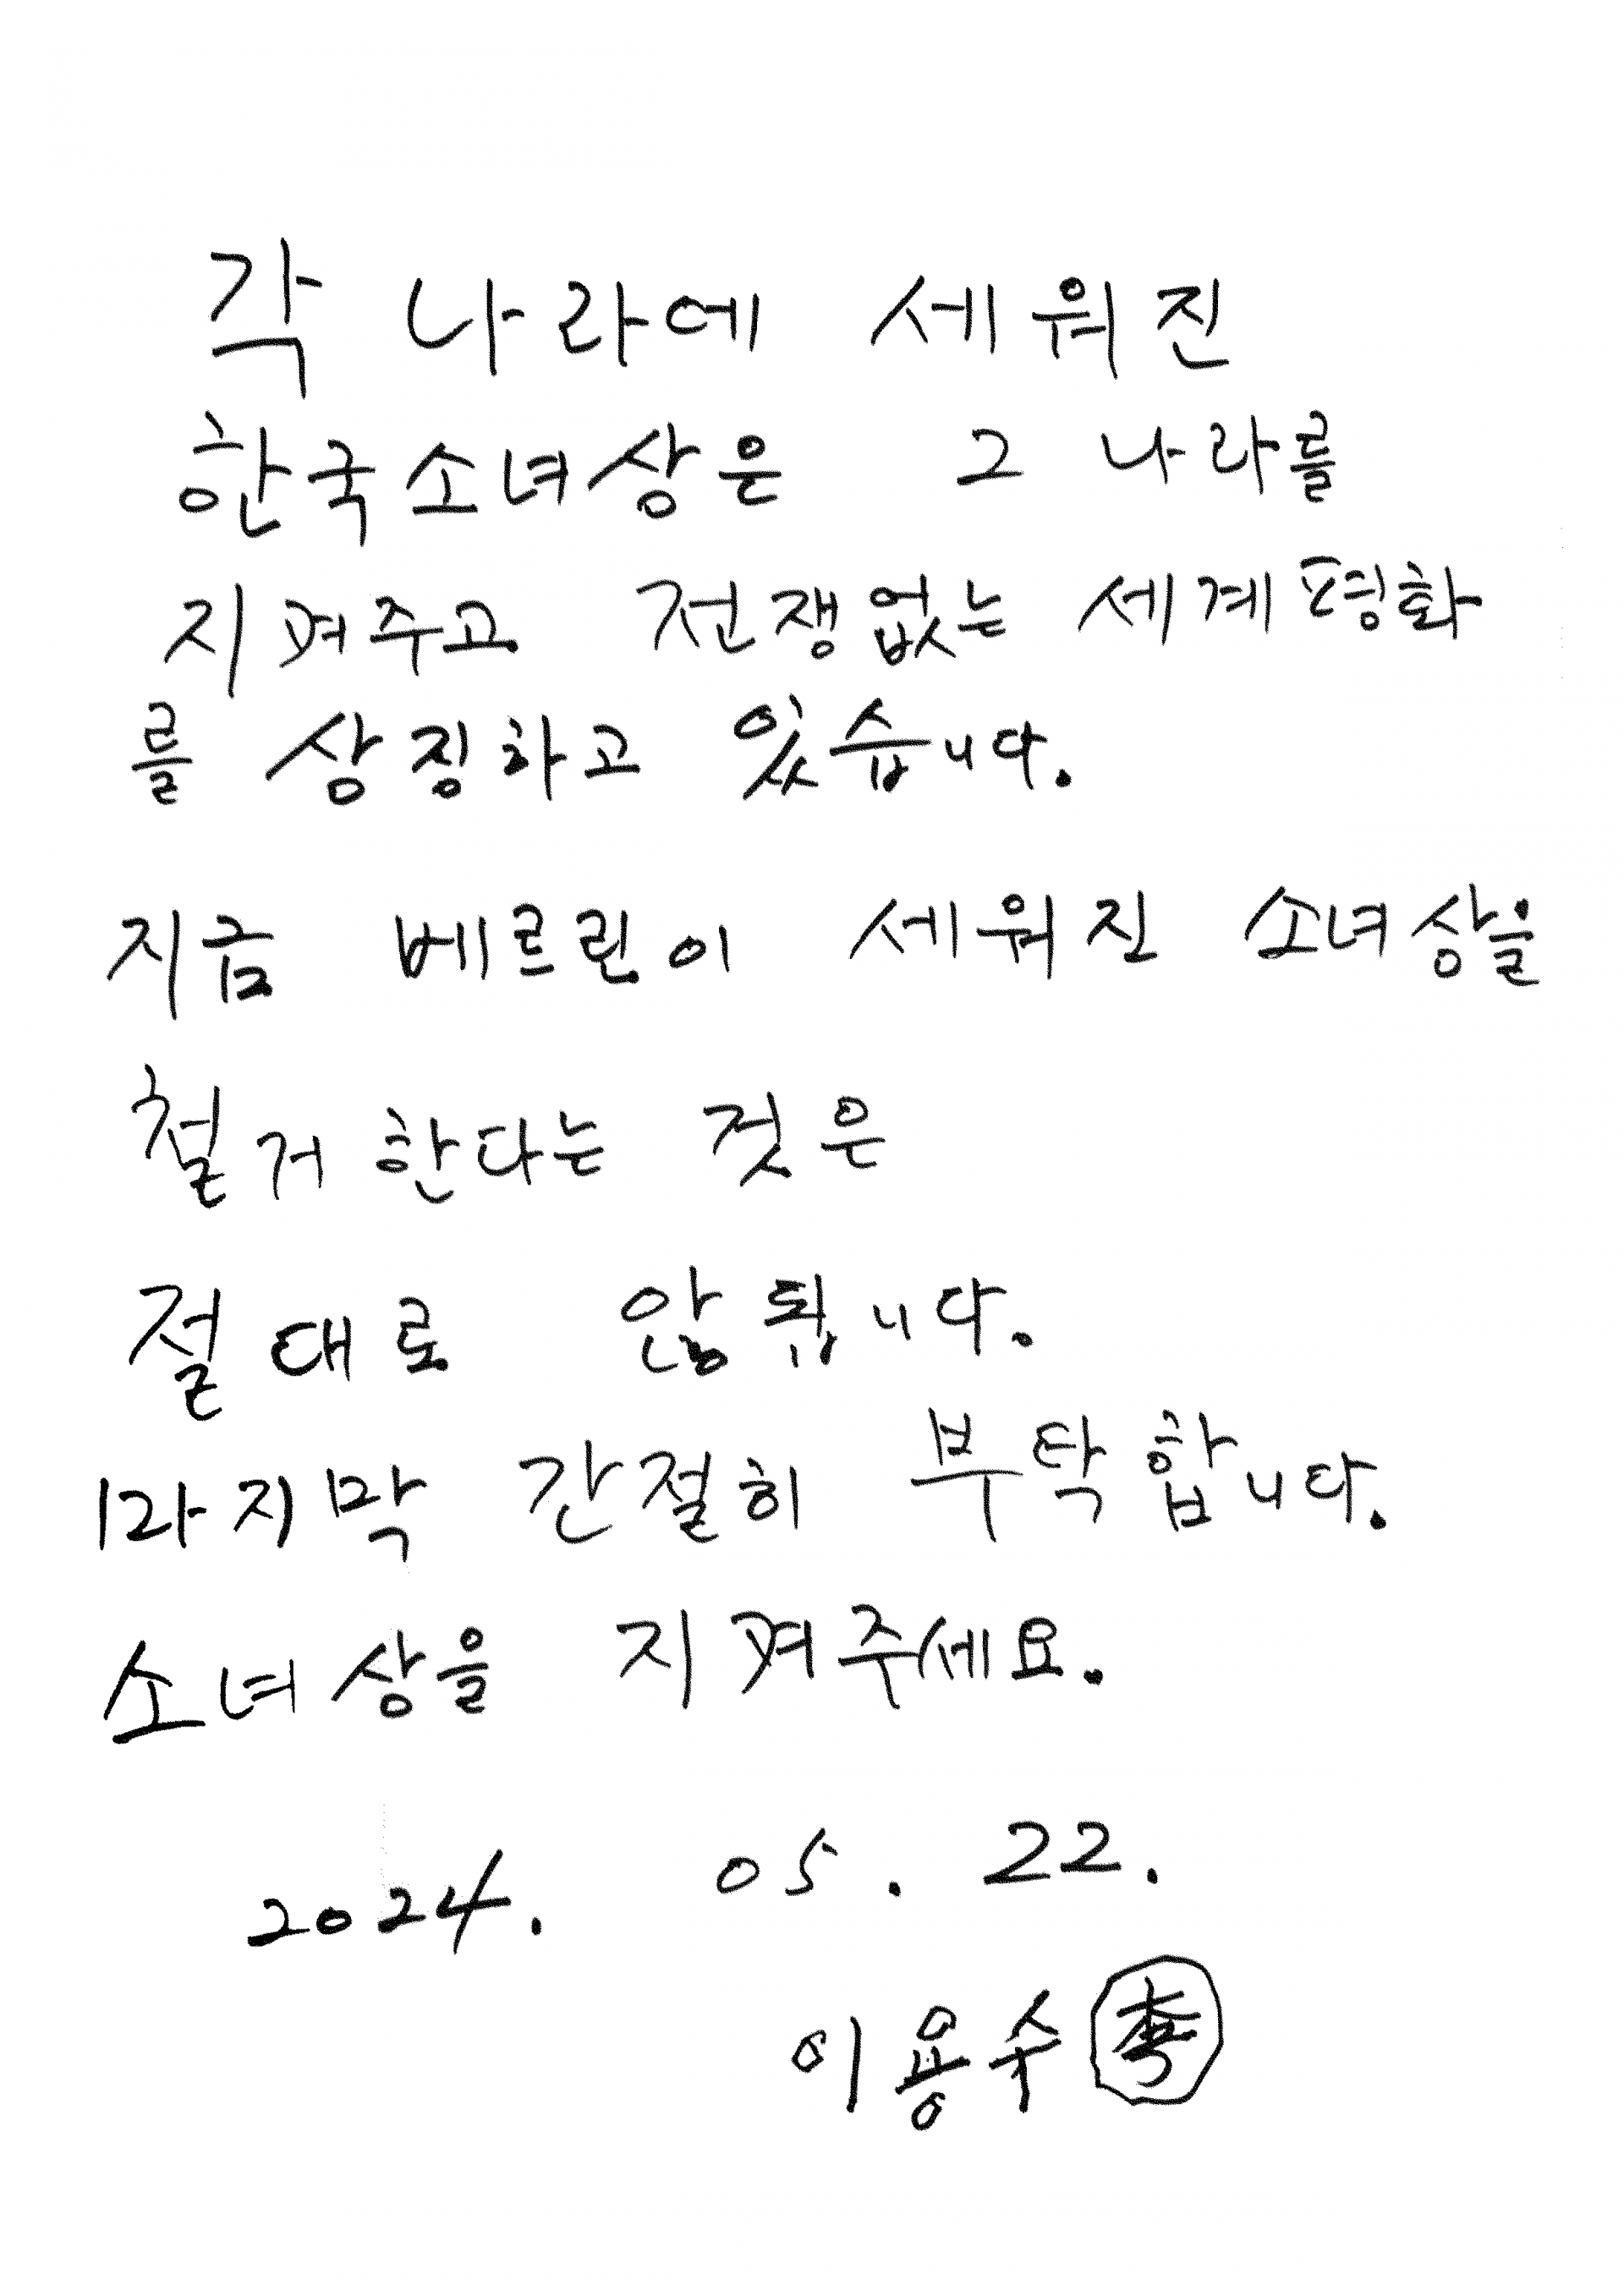 각 나라에 세워진
한국소녀상은 그 나라를
지켜주고 전쟁없는 세계평화
를 상징하고 있습니다.
지금 베르린이 세워진 소녀상을
철거 한다는 것은
절대로 않됩니다.
마지막 간절히 부탁합니다.
소녀상을 지켜주세요.
2024. 05. 22.
이용수 李